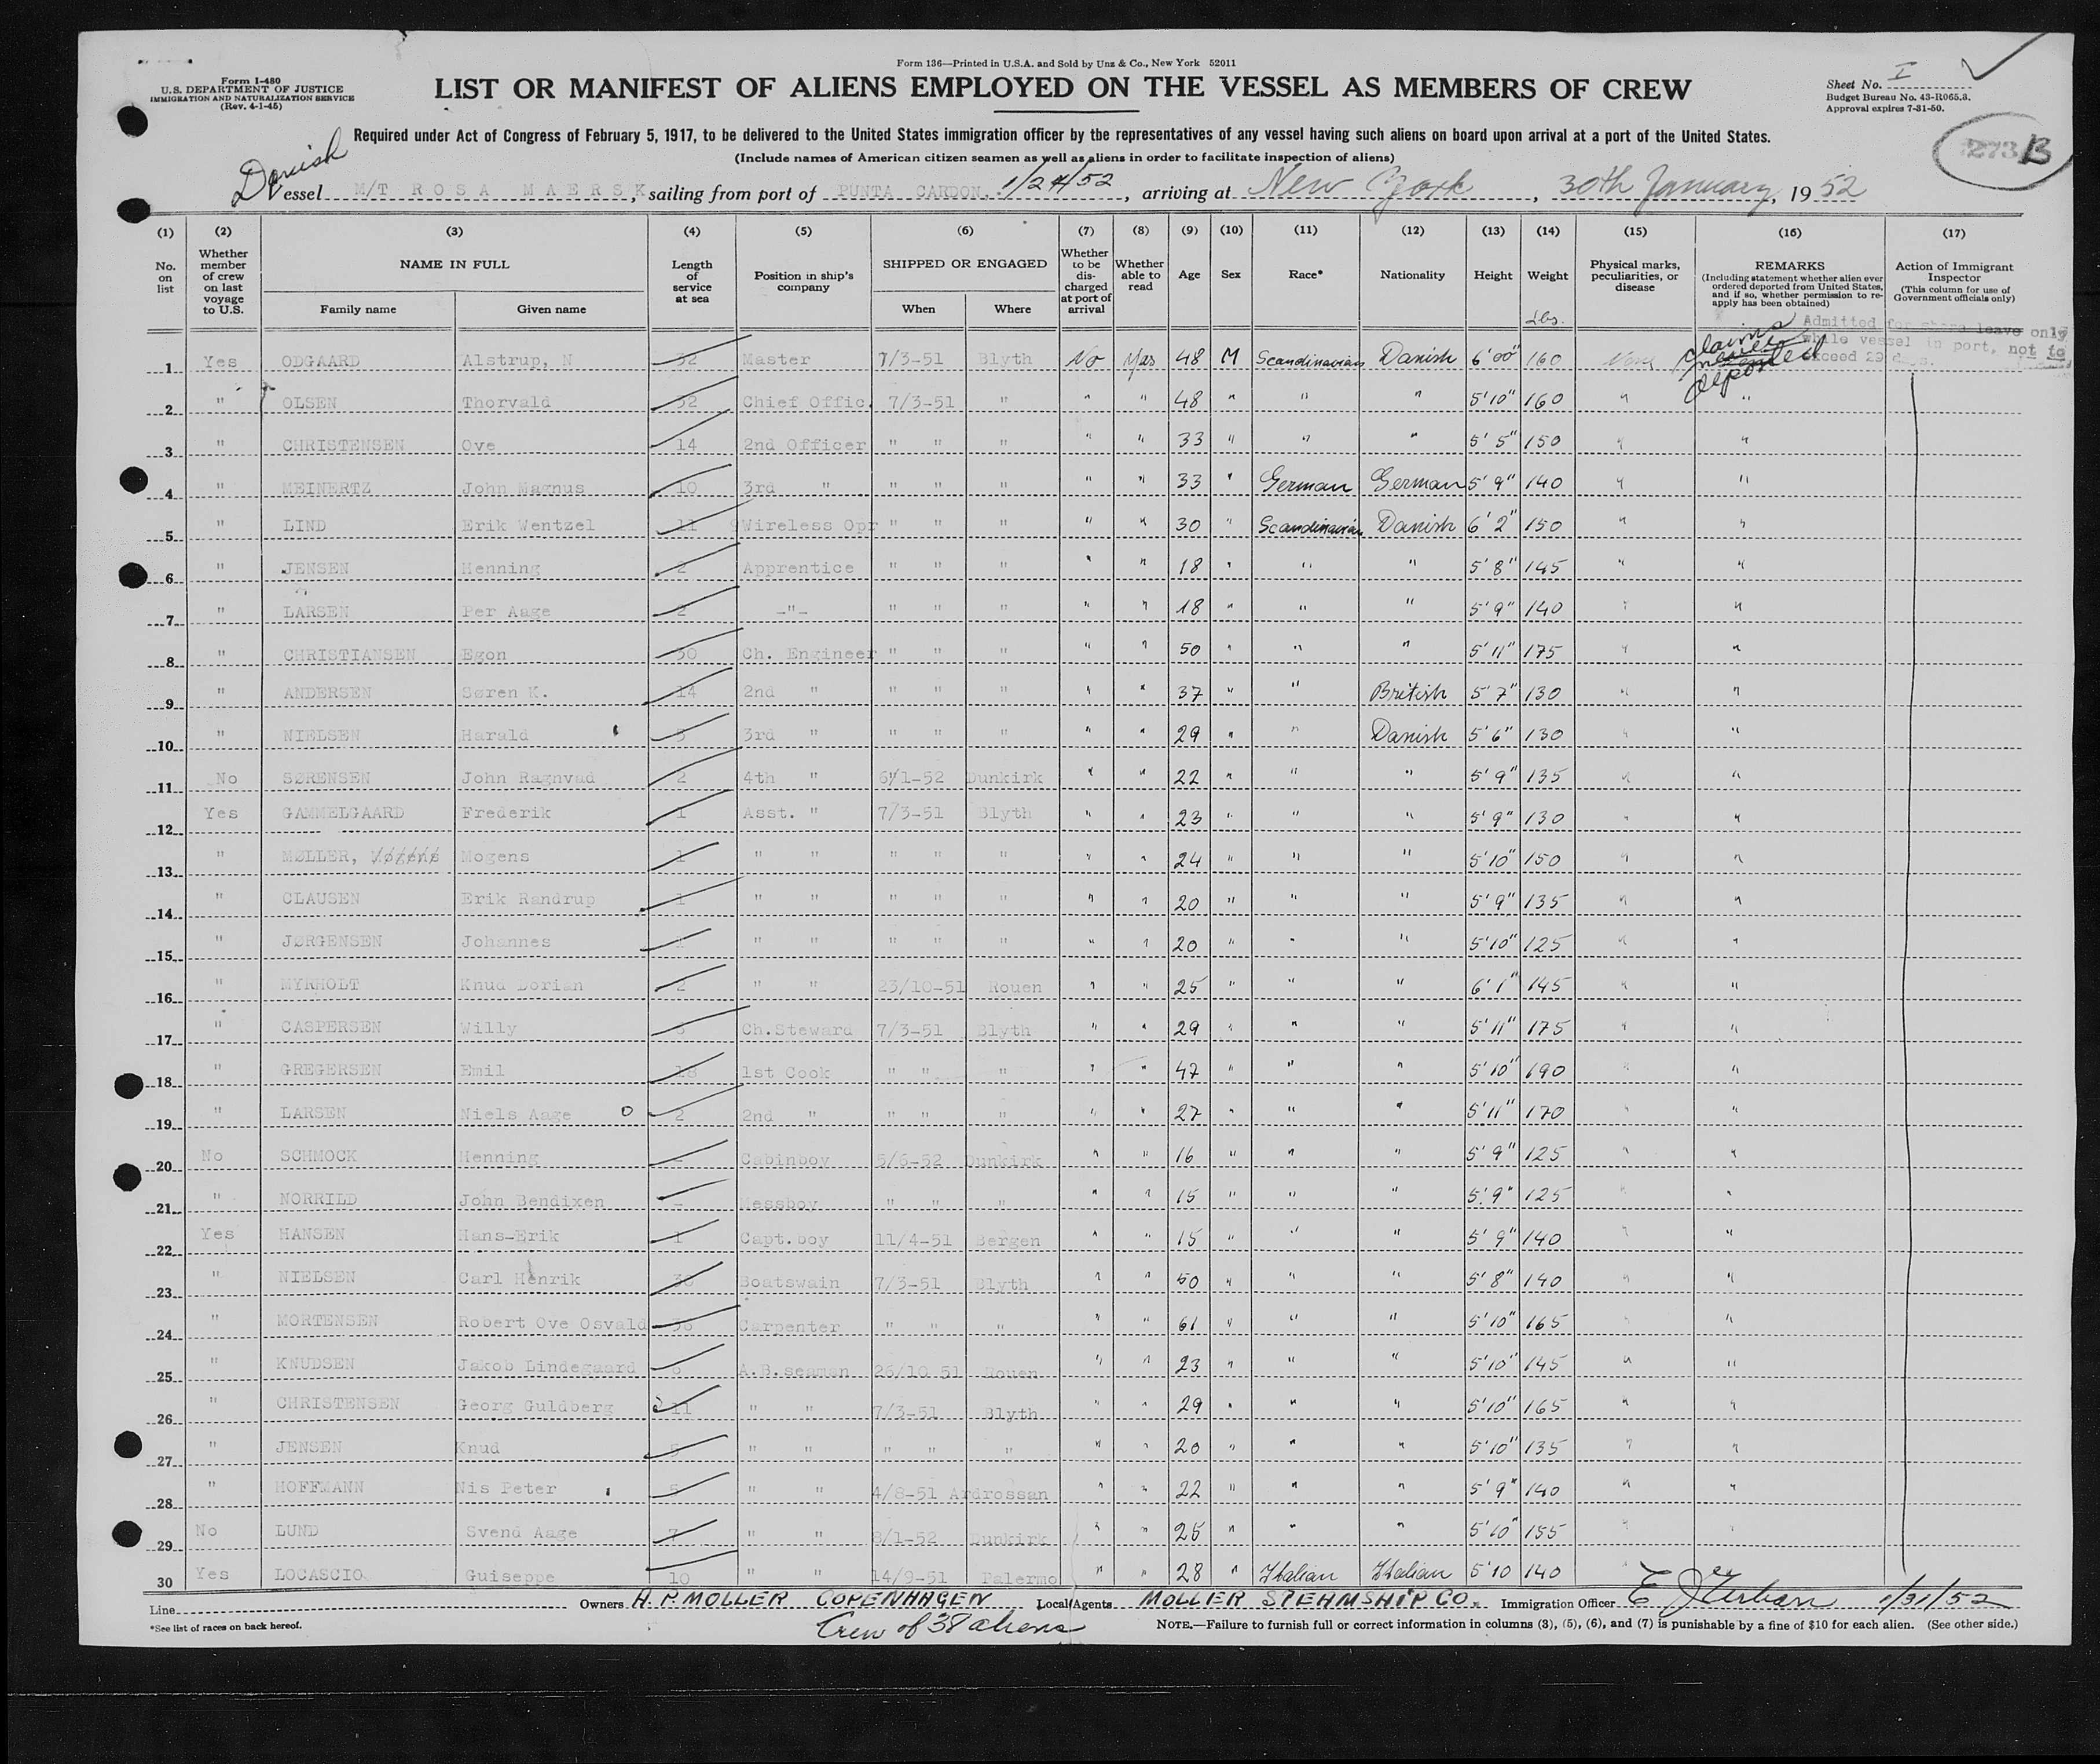 Form 136—Printed in U.S.A. and Sold by Unz & Co., New York 52011
Form I-480
U.S. DEPARTMENT OF JUSTICE
IMMIGRATION AND NATURALIZATION SERVICE
(Rev. 4-1-45)
LIST OR MANIFEST OF ALIENS EMPLOYED ON THE VESSEL AS MEMBERS OF CREW
Sheet No. I
Budget Bureau No. 43-R065.3.
Approval expires 7-31-50.
Required under Act of Congress of February 5, 1917, to be delivered to the United States immigration officer by the representatives of any vessel having such aliens on board upon arrival at a port of the United States.
(Include names of American citizen seamen as well as aliens in order to facilitate inspection of aliens)
273 B
Danish
Vessel M/T ROSA MAERSK, sailing from port of PUNTA CARDON, 1/24/52, arriving at New York, 30th January, 1952
(1) (2) (3) (4) (5) (6) (7) (8) (9) (10) (11) (12) (13) (14) (15) (16) (17)
No. on list
Whether member of crew on last voyage to U.S.
NAME IN FULL
Family name
Given name
Length of service at sea
Position in ship's company
SHIPPED OR ENGAGED
When
Where
Whether to be discharged at port of arrival
Whether able to read
Age
Sex
Race*
Nationality
Height
Weight
Lbs.
Physical marks, peculiarities, or disease
REMARKS
(Including statement whether alien ever ordered deported from United States, and if so, whether permission to reapply has been obtained)
Action of Immigrant Inspector
(This column for use of Government officials only)
Admitted for shore leave only
while vessel in port, not to
exceed 29 days.
claims never deported
1 Yes ODGAARD Alstrup, N 32 Master 7/3-51 Blyth No Yes 48 M Scandinavian Danish 6'00" 160 None
2 " OLSEN Thorvald 32 Chief Offic. 7/3-51 " " " 48 " " " 5'10" 160 " "
3 " CHRISTENSEN Ove 14 2nd Officer " " " " " 33 " " " 5'5" 150 " "
4 " MEINERTZ John Magnus 10 3rd " " " " " " 33 " German German 5'9" 140 " "
5 " LIND Erik Wentzel 11 Wireless Opr " " " " " 30 " Scandinavian Danish 6'2" 150 " "
6 " JENSEN Henning 2 Apprentice " " " " " 18 " " " 5'8" 145 " "
7 " LARSEN Per Aage 2 -"- " " " " " 18 " " " 5'9" 140 " "
8 " CHRISTIANSEN Egon 30 Ch. Engineer " " " " " 50 " " " 5'11" 175 " "
9 " ANDERSEN Søren K. 14 2nd " " " " " " 37 " " British 5'7" 130 " "
10 " NIELSEN Harald 5 3rd " " " " " " 29 " " Danish 5'6" 130 " "
11 No SØRENSEN John Ragnvad 2 4th " 6/1-52 Dunkirk " " 22 " " " 5'9" 135 " "
12 Yes GAMMELGAARD Frederik 1 Asst. " 7/3-51 Blyth " " 23 " " " 5'9" 130 " "
13 " MØLLER, Mogens Mogens 1 " " " " " " " 24 " " " 5'10" 150 " "
14 " CLAUSEN Erik Randrup 1 " " " " " " " 20 " " " 5'9" 135 " "
15 " JØRGENSEN Johannes " " " " " " " 20 " " " 5'10" 125 " "
16 " MYRHOLT Knud Dorian 2 " " 23/10-51 Rouen " " 25 " " " 6'1" 145 " "
17 " CASPERSEN Willy Ch.Steward 7/3-51 Blyth " " 29 " " " 5'11" 175 " "
18 " GREGERSEN Emil 18 1st Cook " " " " " 47 " " " 5'10" 190 " "
19 " LARSEN Niels Aage 2 2nd " " " " " " 27 " " " 5'11" 170 " "
20 No SCHMOCK Henning - Cabinboy 5/6-52 Dunkirk " " 16 " " " 5'9" 125 " "
21 " NORRILD John Bendixen - Messboy " " " " " 15 " " " 5'9" 125 " "
22 Yes HANSEN Hans-Erik 1 Capt.boy 11/4-51 Bergen " " 15 " " " 5'9" 140 " "
23 " NIELSEN Carl Henrik 36 Boatswain 7/3-51 Blyth " " 50 " " " 5'8" 140 " "
24 " MORTENSEN Robert Ove Osvald 36 Carpenter " " " " " 61 " " " 5'10" 165 " "
25 " KNUDSEN Jakob Lindegaard 6 A.B.seaman 26/10 51 Rouen " " 23 " " " 5'10" 145 " "
26 " CHRISTENSEN Georg Guldberg 11 " " 7/3-51 Blyth " " 29 " " " 5'10" 165 " "
27 " JENSEN Knud 5 " " " " " " " 20 " " " 5'10" 135 " "
28 " HOFFMANN Nis Peter 5 " " 4/8-51 Ardrossan " " 22 " " " 5'9" 140 " "
29 No LUND Svend Aage 7 " " 8/1-52 Dunkirk " " 25 " " " 5'10" 155 " "
30 Yes LOCASCIO Guiseppe 10 " " 14/9-51 Palermo " " 28 " Italian Italian 5'10 140
Line Owners A. P. MOLLER COPENHAGEN Local Agents MOLLER STEAMSHIP CO. Immigration Officer 1/31/52
*See list of races on back hereof.
Crew of 38 aliens
NOTE.—Failure to furnish full or correct information in columns (3), (5), (6), and (7) is punishable by a fine of $10 for each alien. (See other side.)